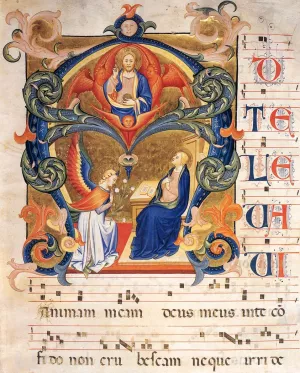 D
TE
LE
UA
UI
Animam meam deus meus inte cō
fido non eru bescam neque irri de